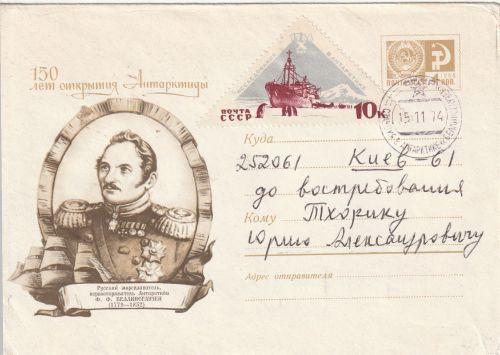 150
лет открытия Антарктиды
ПОЧТА
СССР
10к
15-11 74
Куда
252061 Киев 61
до востребования
Кому Тхорику
Юрию Александровичу
Адрес отправителя
Русский мореплаватель,
первооткрыватель Антарктиды
Ф. Ф. БЕЛЛИНСГАУЗЕН
(1779—1852)